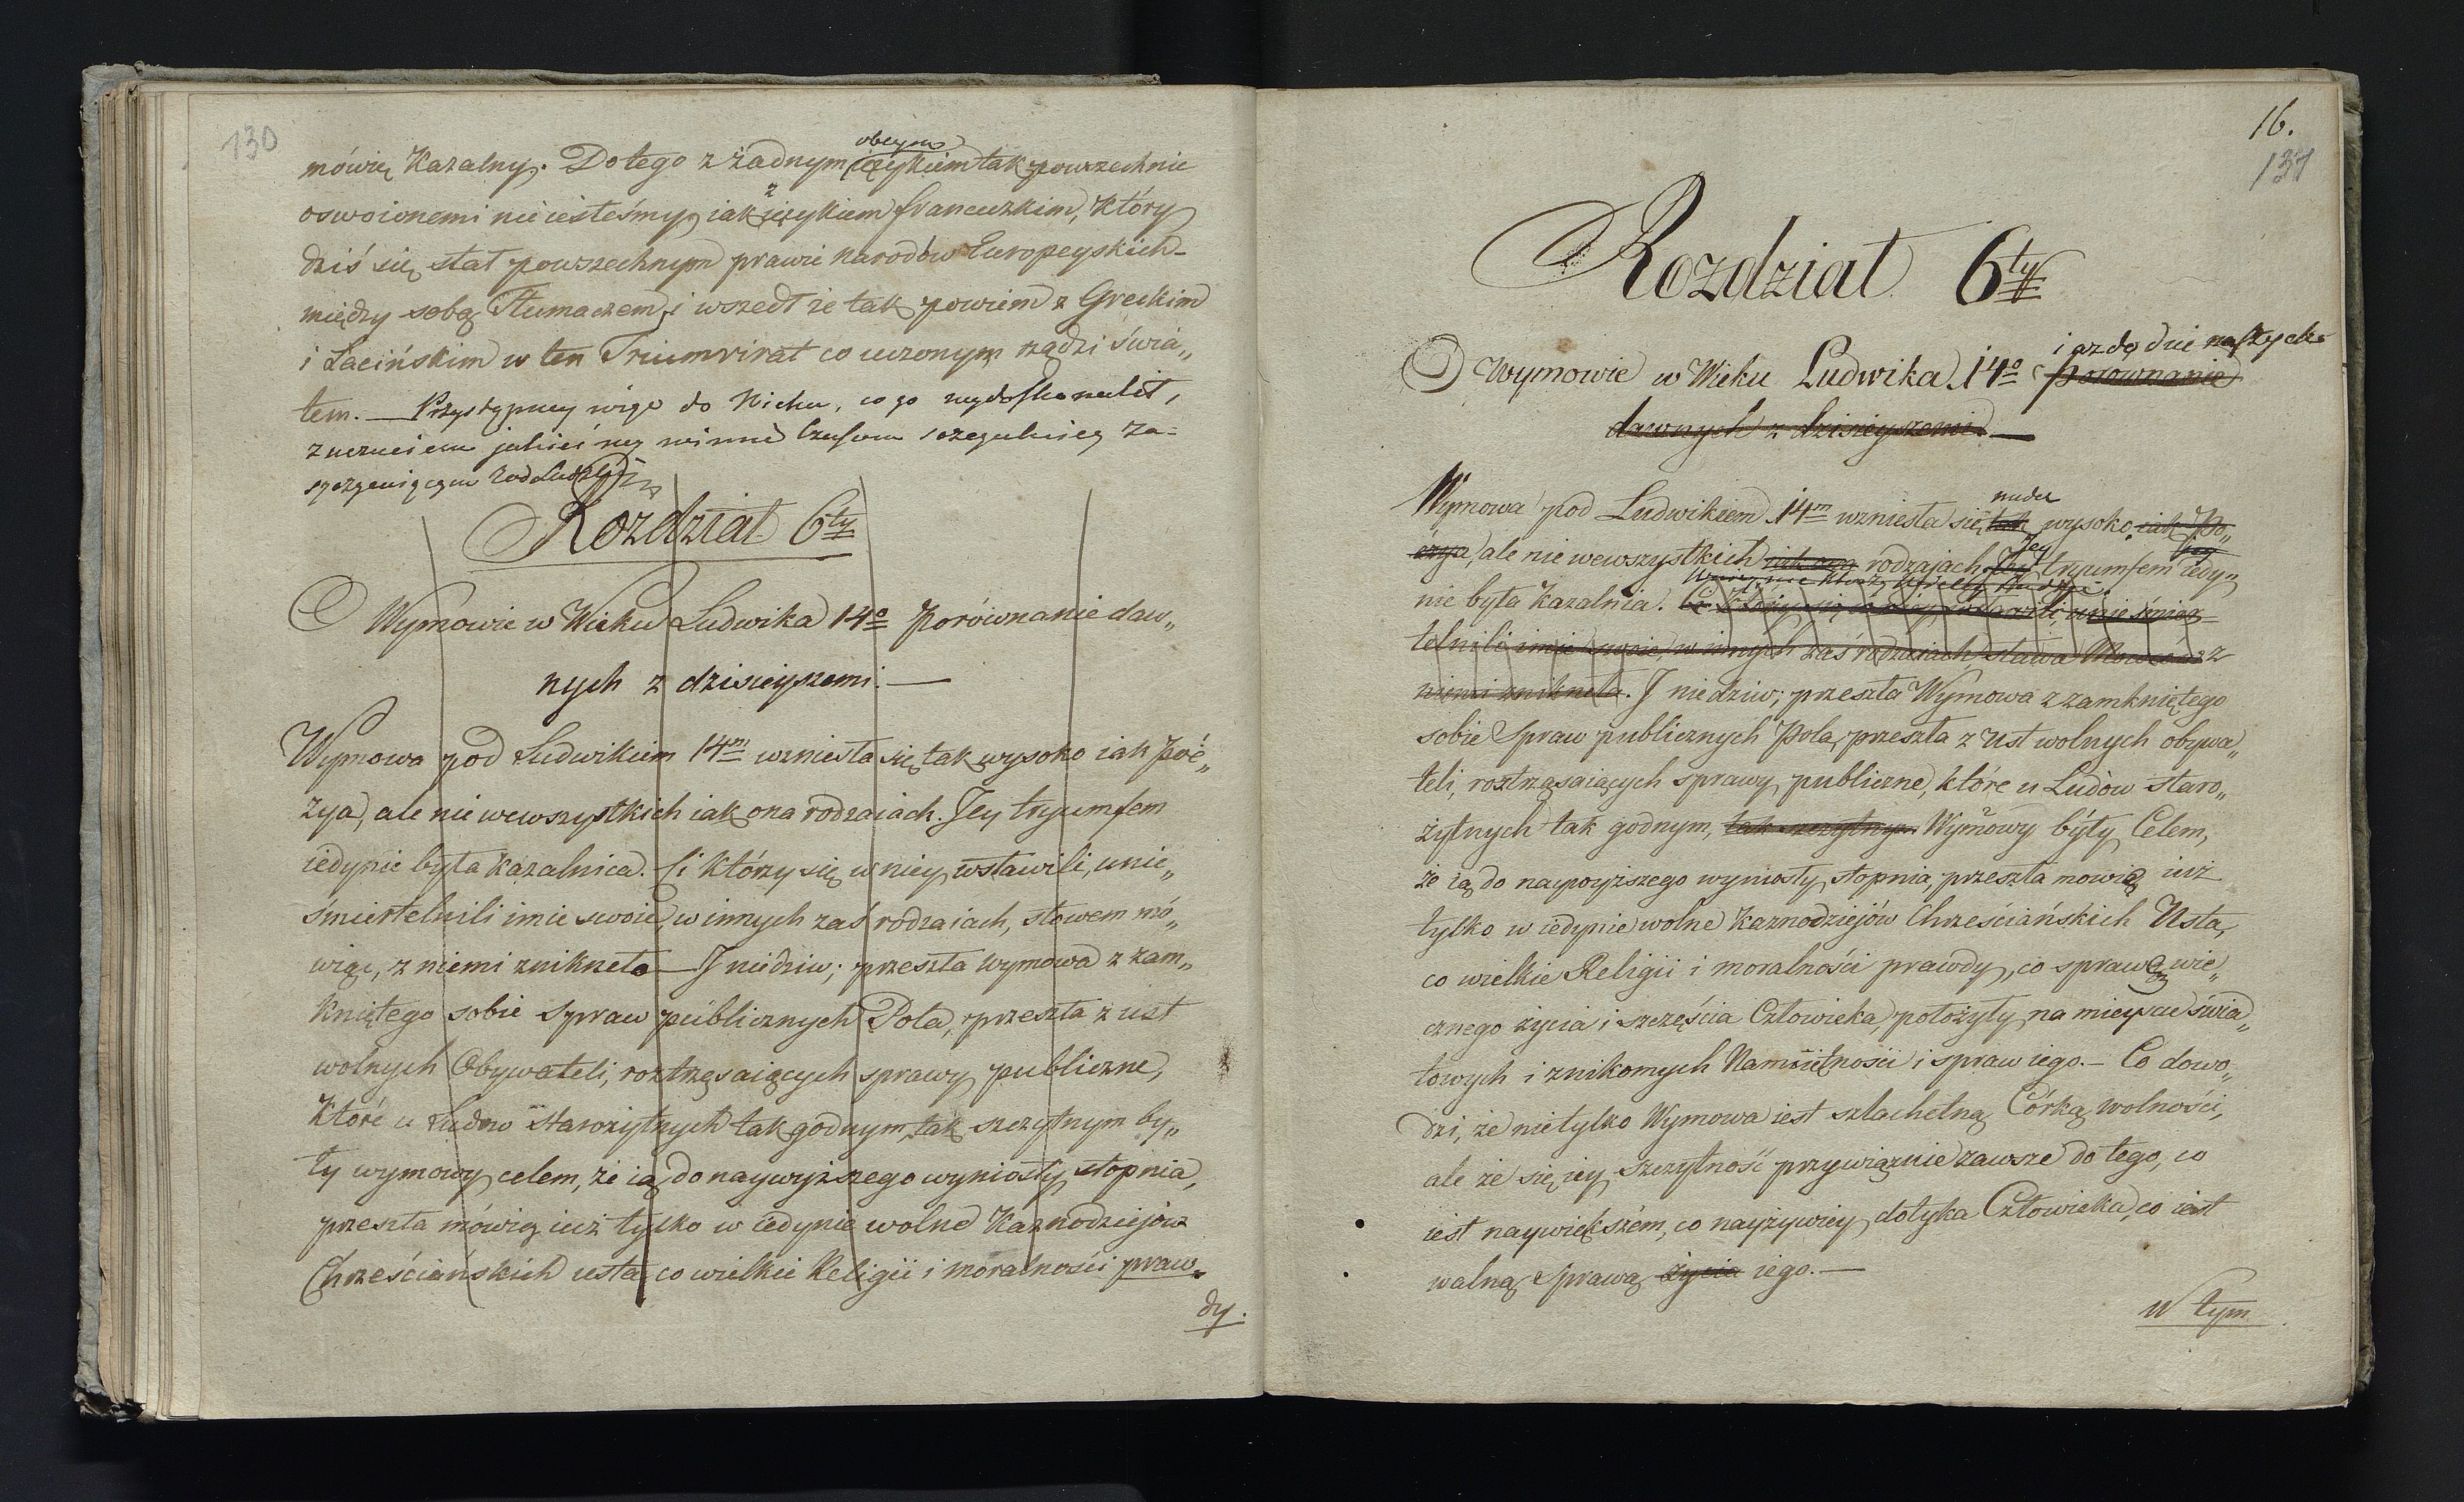 130
mówię Kazalny. Do tego z żadnym obcym ięzykiem tak powszechnie
oswoionemi nie iesteśmy, iak z ięzykiem francuzkim, który
dziś się stał powszechnym prawie narodów Europeyskich
między sobą Tłumaczem, i wszedł że tak powiem z Greckim
i Łacińskim w ten Triumvirat co uczonym rządzi świa„
tem. — Przystąpmy więc do Wieku, co go wydoskonalił,
Rozdział 6ty
O Wymowie w Wieku Ludwika 14o Porównanie daw„
nych z dzisieyszemi. —
Wymowa pod Ludwikiem 14m wzniesła się tak wysoko iak Poé„
zya, ale nie wewszystkich iak ona rodzaiach. Jey tryumfem
iedynie była kazalnica. Ci którzy się w niey wsławili, unie„
śmiertelnili imie swoie, w innych zaś rodzaiach, słowem mó„
wiąc, z niemi znikneła — I niedziw; przeszła wymowa z zam„
kniętego sobie Spraw públicznych Pola, przeszła z ust
wolnych Obywateli, roztrząsaiących sprawy publiczne,
które u Ludow starożytnych tak godnym, tak szczytnym by„
ły wymowy celem, że ią do naywyższego wyniosły stopnia,
przeszła mówię iuż tylko w iedynie wolne Kaznodziejów
Chrześciańskich usta, co wielkie Religii i moralności praw„
dy.
16.
131
Rozdział 6ty
i ozdobie naszych
O Wymowie w Wieku Ludwika 14o Porownanie
dawnych z dzisieyszemi. —
Wymowa pod Ludwikiem 14m wzniesła się tak wysoko iak Po„
ezya, ale nie wewszystkich iak ona rodzajach. Jey tryumfem iedy„
nie była Kazalnia. Ci którzy się w niey wsławili, unieśmier„
telnili imie swoie, w innych zaś rodzaiach, sława Mowców z
niemi znikneła. I nie dziw; przeszła Wymowa z zamkniętego
sobie Spraw publicznych Pola, przeszła z ust wolnych obywa„
teli, roztrząsaiących sprawy publiczne, które u Ludów staro„
żytnych tak godnym, tak szczytnym Wymowy były Celem,
że ią do naywyższego wyniosły stopnia, przeszła mowię iuż
tylko w iedynie wolne Kaznodziejów Chrześciańskich Usta,
co wielkie Religii i moralności prawdy, co sprawę wie„
cznego życia i szczęścia Człowieka, położyły na mieysce świa„
towych i znikomych Namiętności i spraw iego. — Co dowo„
dzi, że nietylko Wymowa iest szlachetną Córką wolności,
ale że się iey szczytność przywiązuie zawsze do tego, co
iest naywiększém, co nayżywiey dotyka Człowieka, co iest
walną Sprawą życia iego. —
W tym